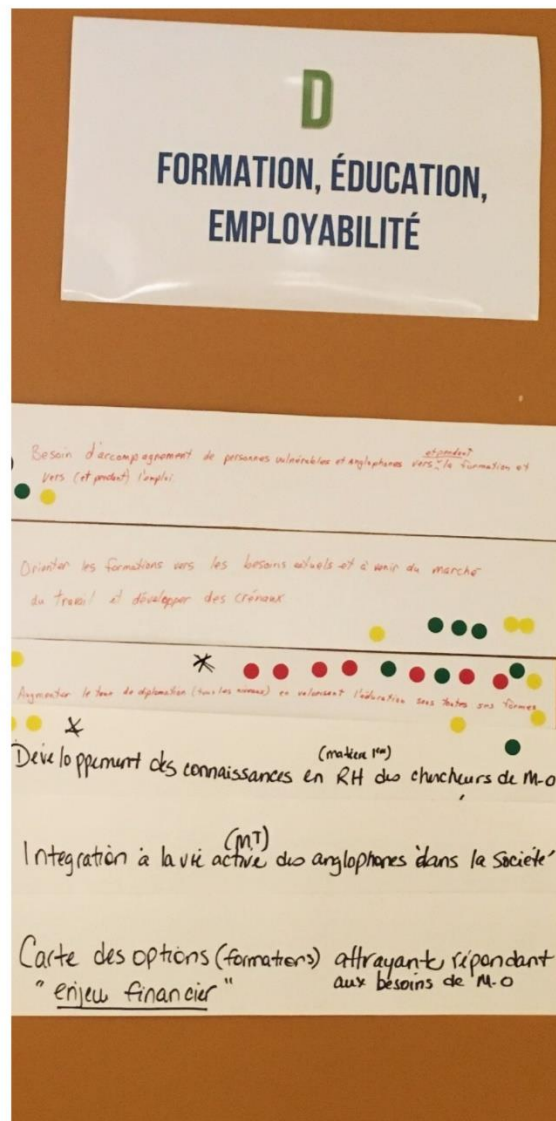 D
FORMATION, ÉDUCATION,
EMPLOYABILITÉ
et pendant
Besoin d'accompagnement de personnes vulnérables et anglophones vers la formation et
vers (et pendant) l'emploi
Orienter les formations vers les besoins actuels et à venir du marché
du travail et développer des créneaux
Augmenter le taux de diplomation (tous les niveaux) en valorisant l'éducation sous toutes ses formes
(matière 1ère)
Développement des connaissances en RH des chercheurs de M-O
(MT)
Intégration à la vie active des anglophones dans la société
Carte des options (formations) attrayante répondant
"enjeu financier" aux besoins de M-O